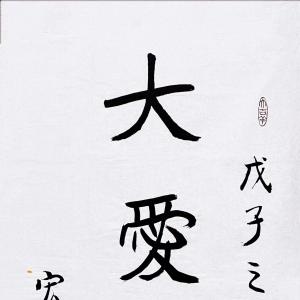 大愛
戊子之